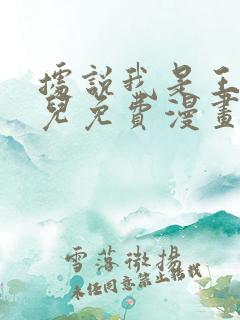 據說我是王
兒免費漫畫
雪落微揚
未任同意禁止轉載